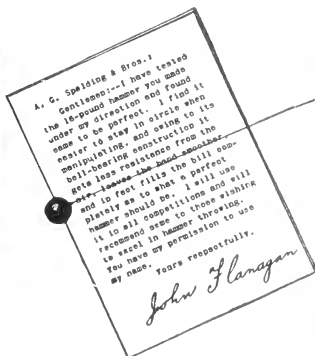 A. G. Spalding & Bros.:
Gentlemen:--I have tested
the 16-pound hammer you made
under my direction and found
same to be perfect. I find it
easier to stay in circle when
manipulating, and owing to its
ball-bearing construction it
gets less resistance from the
air, leaves the hand smoother,
and in fact fills the bill com-
pletely as to what a perfect
hammer should be. I will use
it in all competitions and will
recommend same to those wishing
to excel in hammer throwing.
You have my permission to use
my name. Yours respectfully,
John Flanagan